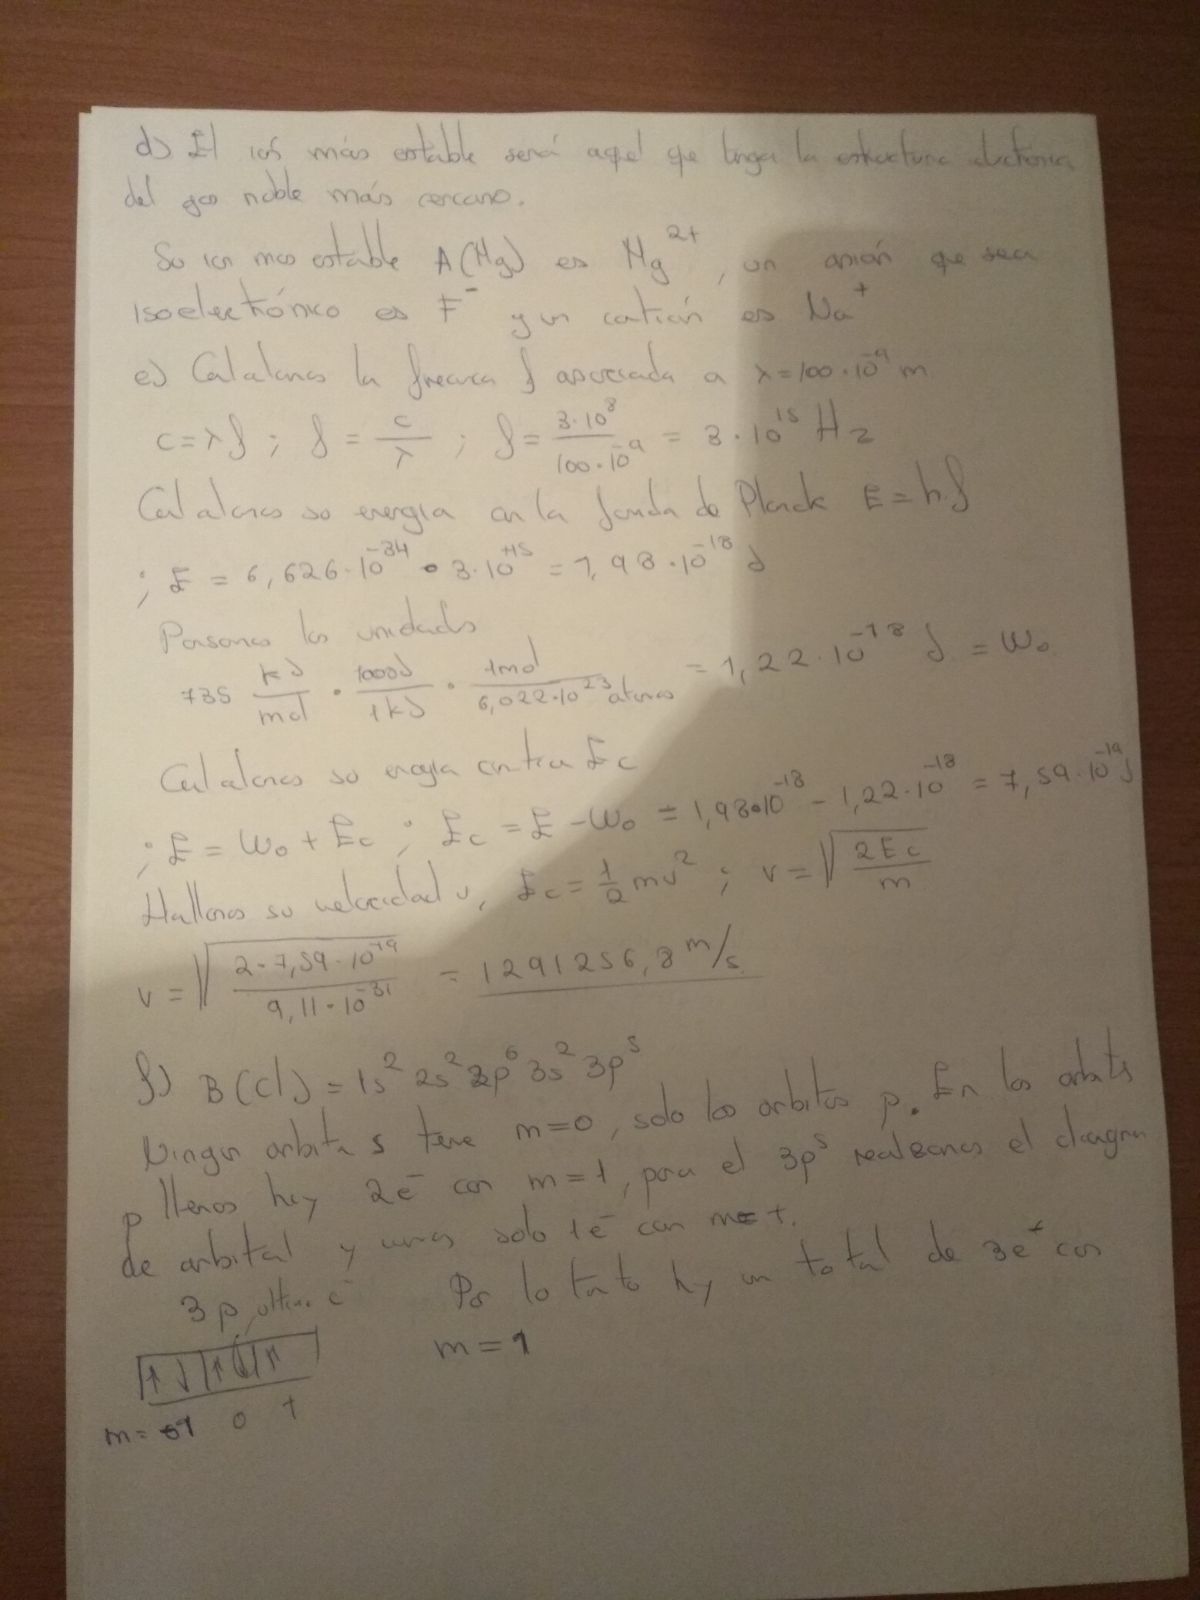 d) El ion más estable será aquel que tenga la estructura electrónica
del gas noble más cercano.
Su ion mas estable A(Mg) es Mg²⁺, un anión que sea
isoelectrónico es F⁻ y un catión es Na⁺
e) Calculamos la frecuencia f asociada a λ=100·10⁻⁹ m
c=λf ; f = c/λ ; f = 3·10⁸/100·10⁻⁹ = 3·10¹⁵ Hz
Calculamos su energía con la formula de Planck E=h·f
; E = 6,626·10⁻³⁴ · 3·10⁺¹⁵ = 1,98·10⁻¹⁸ J
Pasamos las unidades
735 kJ/mol · 1000J/1kJ · 1mol/6,022·10²³ atomos = 1,22·10⁻¹⁸ J = W₀
Calculamos su energía cinética Ec
; E = W₀ + Ec ; Ec = E - W₀ = 1,98·10⁻¹⁸ - 1,22·10⁻¹⁸ = 7,59·10⁻¹⁹ J
Hallamos su velocidad v, Ec = 1/2 mv² ; v = √(2Ec/m)
v = √(2·7,59·10⁻¹⁹/9,11·10⁻³¹) = 1291256,8 m/s
f) B(Cl) = 1s² 2s² 2p⁶ 3s² 3p⁵
Ningun orbital s tiene m=0, solo los orbitas p. En los orbitals
p llenos hay 2e⁻ con m=1, para el 3p⁵ realizamos el diagrama
de orbital y vemos solo 1e⁻ con m=1.
3p, ultimo e⁻ Por lo tanto hay un total de 3e⁻ con
m=1
↑↓ ↑↓ ↑
m= -1 0 1